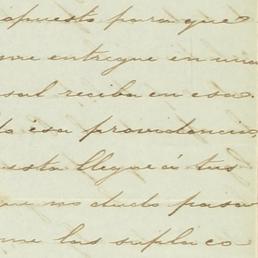 apuesto para que
me entregue en una
sal reciba en esa
esa providencia
esta llegue á tus
que no dudo pasa
me las suplico